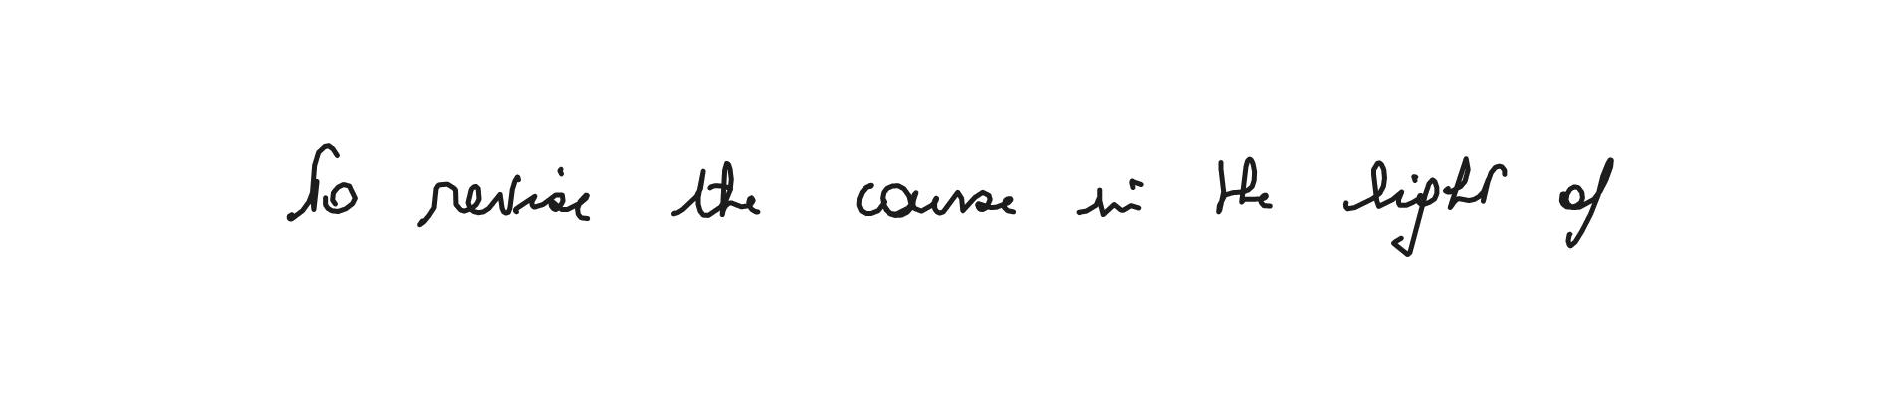 To revise the course in the light of